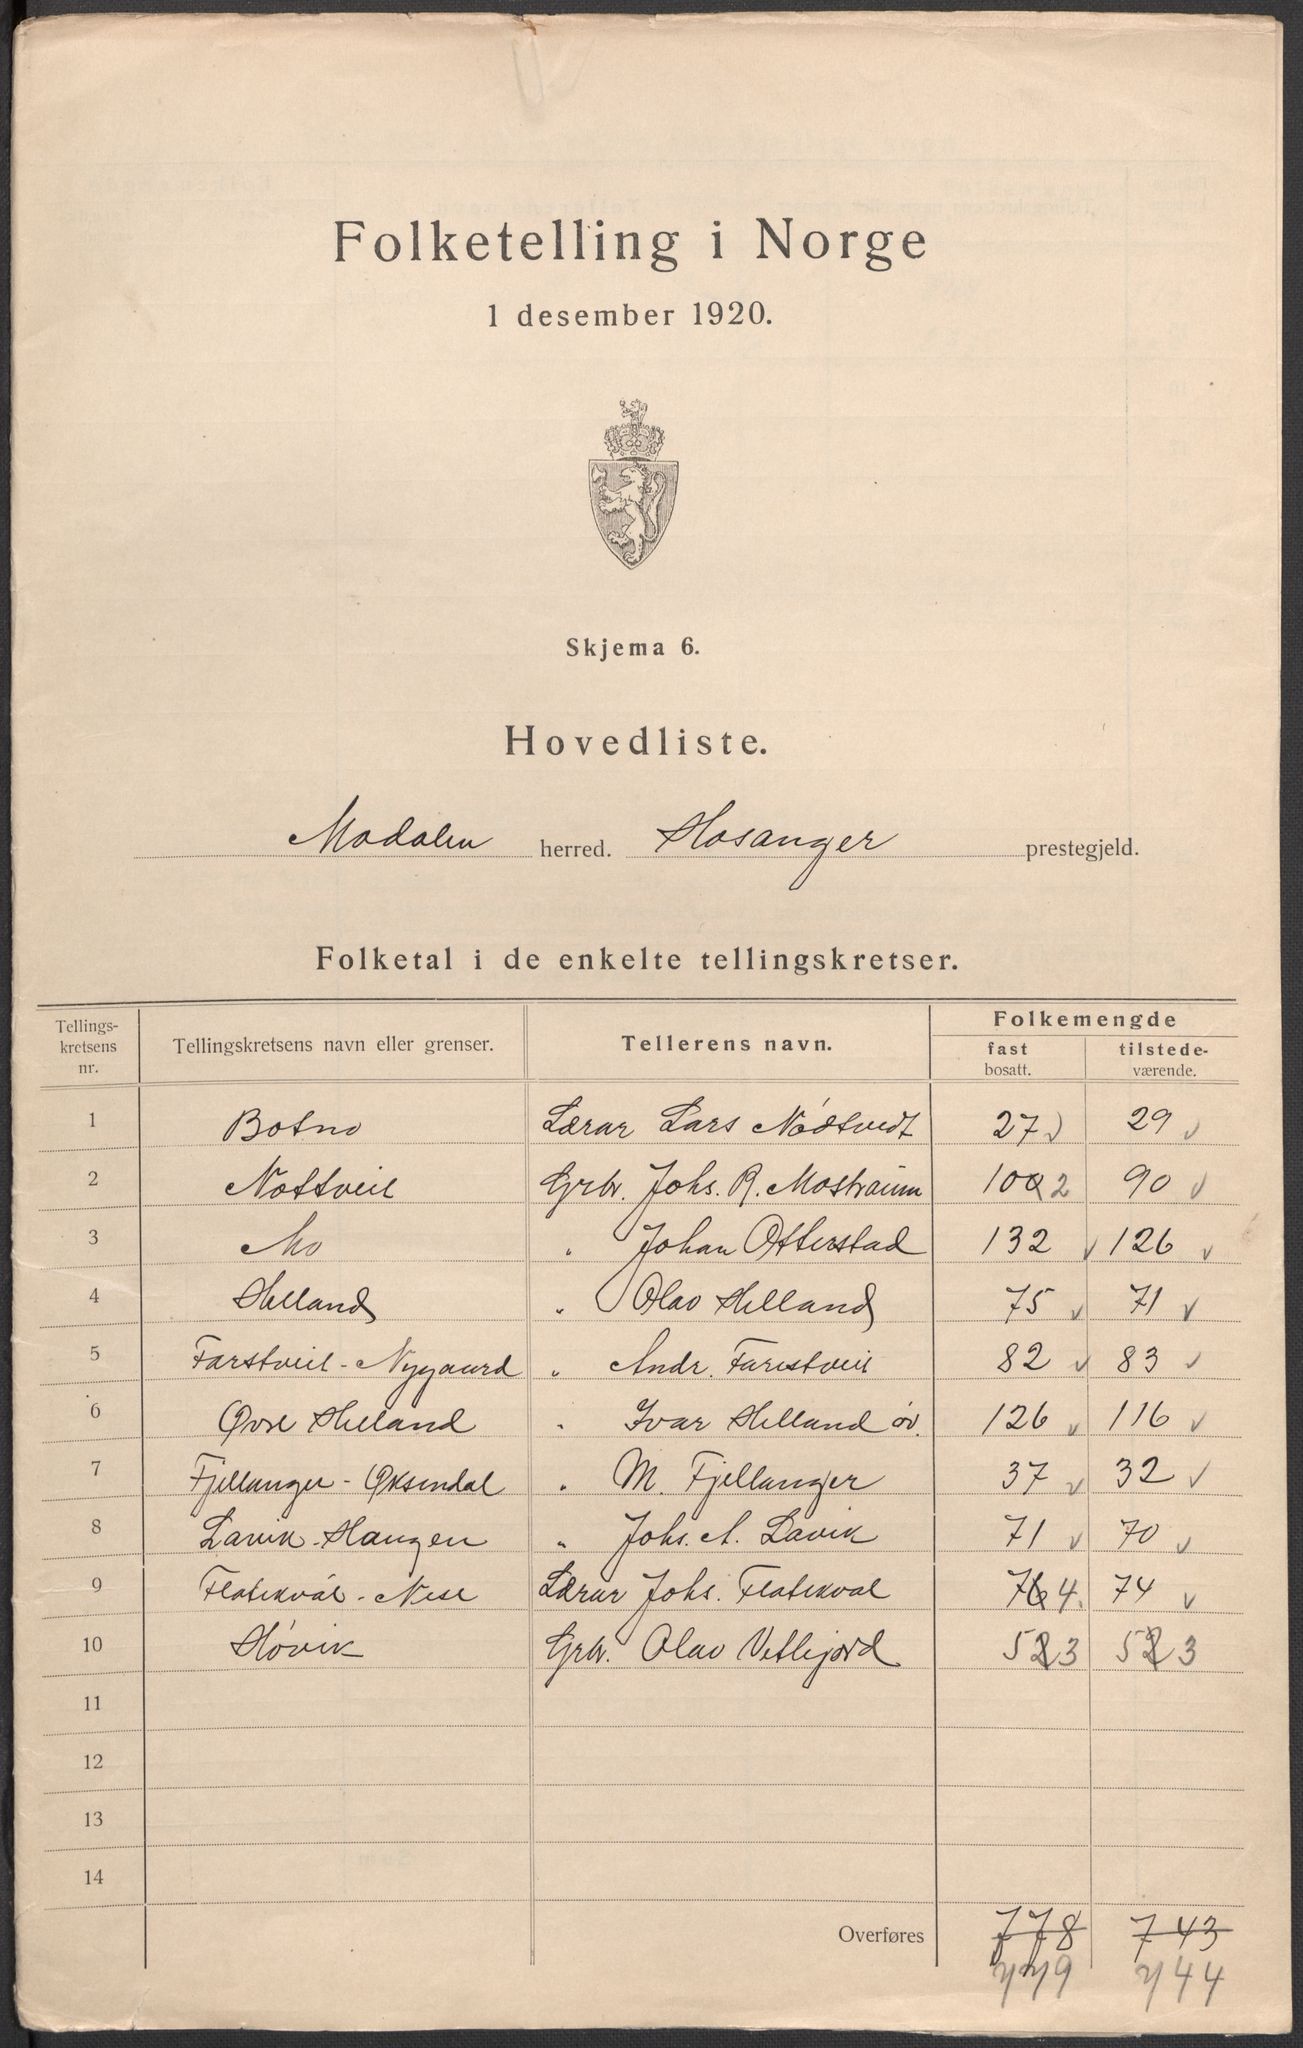 Folketelling i Norge
1 desember 1920.
Skjema 6.
Hovedliste.
Modalen herred. Hosanger prestegjeld.
Folketal i de enkelte tellingskretser.
Tellings-kretsens nr. Tellingskretsens navn eller grenser. Tellerens navn. Folkemengde fast bosatt. tilstede-værende.
1 Botno Lærar Lars Nódtvedt 27 29
2 Nottveit Grbr. Johs. R. Mostraum 100 2 90
3 Mo " Johan Otterstad 132 126
4 Helland " Olav Helland 75 71
5 Farstveit - Nygaard " Andr. Farestveit 82 83
6 Øvre Helland " Ivar Helland óv. 126 116
7 Fjellanger - Øksendal " M. Fjellanger 37 32
8 Lavik - Haugen " Johs. A. Lavik 71 70
9 Flatekvál - Nese Lærar Johs. Flatekval 76 4 74
10 Høvik Grbr. Olav Vetlejord 52 3 52 3
11
12
13
14
Overføres 778 743
779 744